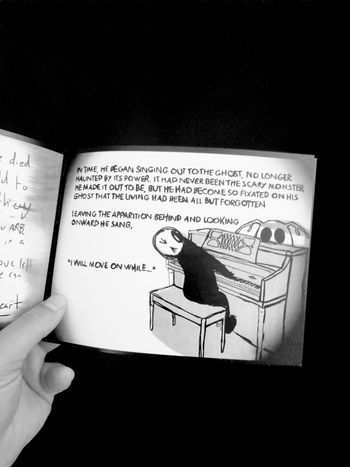 died
to
ARE
in a
left
can
IN TIME, HE BEGAN SINGING OUT TO THE GHOST, NO LONGER
HAUNTED BY ITS POWER. IT HAD NEVER BEEN THE SCARY MONSTER
HE MADE IT OUT TO BE, BUT HE HAD BECOME SO FIXATED ON HIS
GHOST THAT THE LIVING HAD BEEN ALL BUT FORGOTTEN
LEAVING THE APPARITION BEHIND AND LOOKING
ONWARD HE SANG,
"I WILL MOVE ON WHILE..."